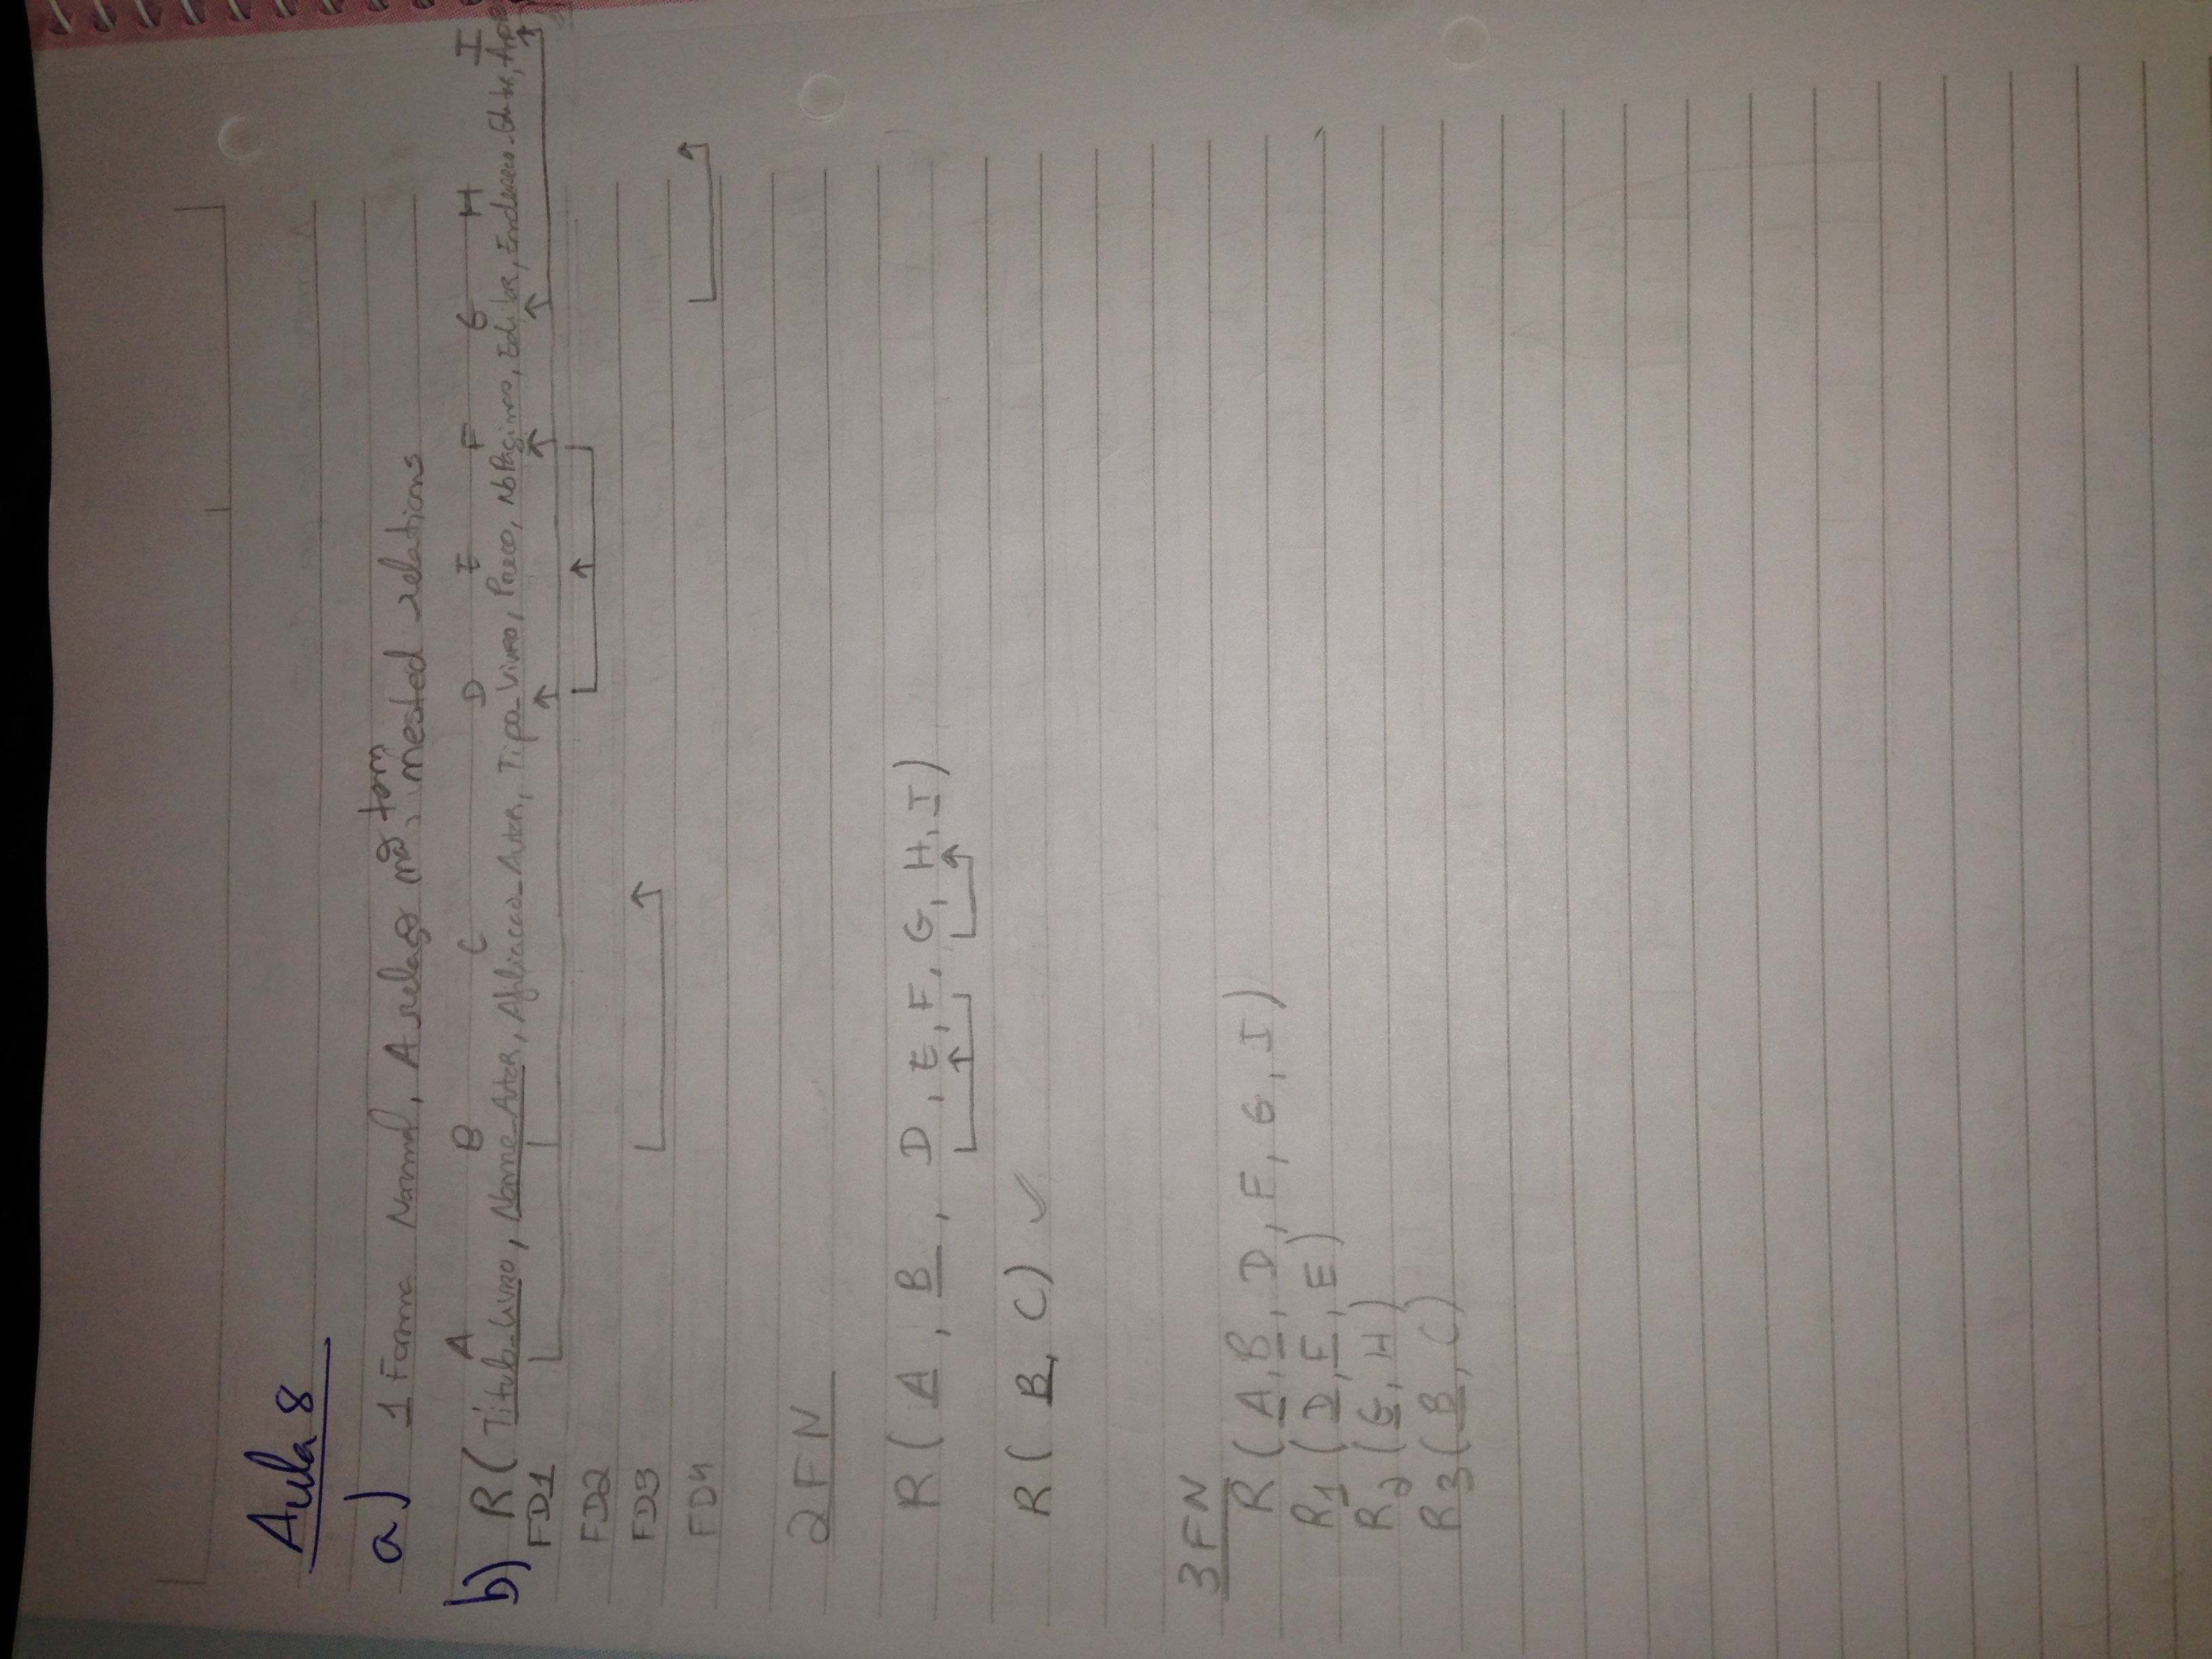 Aula 8
a) 1 Forma Normal, A relação não tem nested relations
A B C D E F G H I
b) R( Titulo_Livro, Nome_Autor, Afiliacao_Autor, Tipo_Livro, Preco, NoPaginas, Editor, Endereco_Editor,
FD1
FD2
FD3
FD4
2FN
R( A, B, D, E, F, G, H, I)
R( B, C) ✓
3FN
R(A, B, D, F, G, I)
R1 (D, F, E)
R2 (G, H)
R3 (B, C)